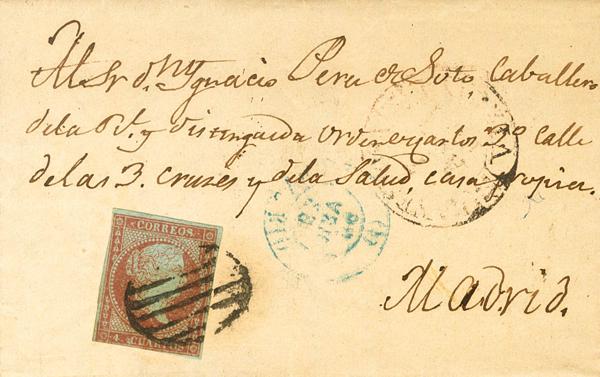 Al Sr d.n Ygnacio Perez de Soto Caballero
de la Rl. y distinguida orden Carlos 3º calle
de las 3. Cruzes y de la Salud, casa propia.
Madrid.
CORREOS
4 CUARTOS